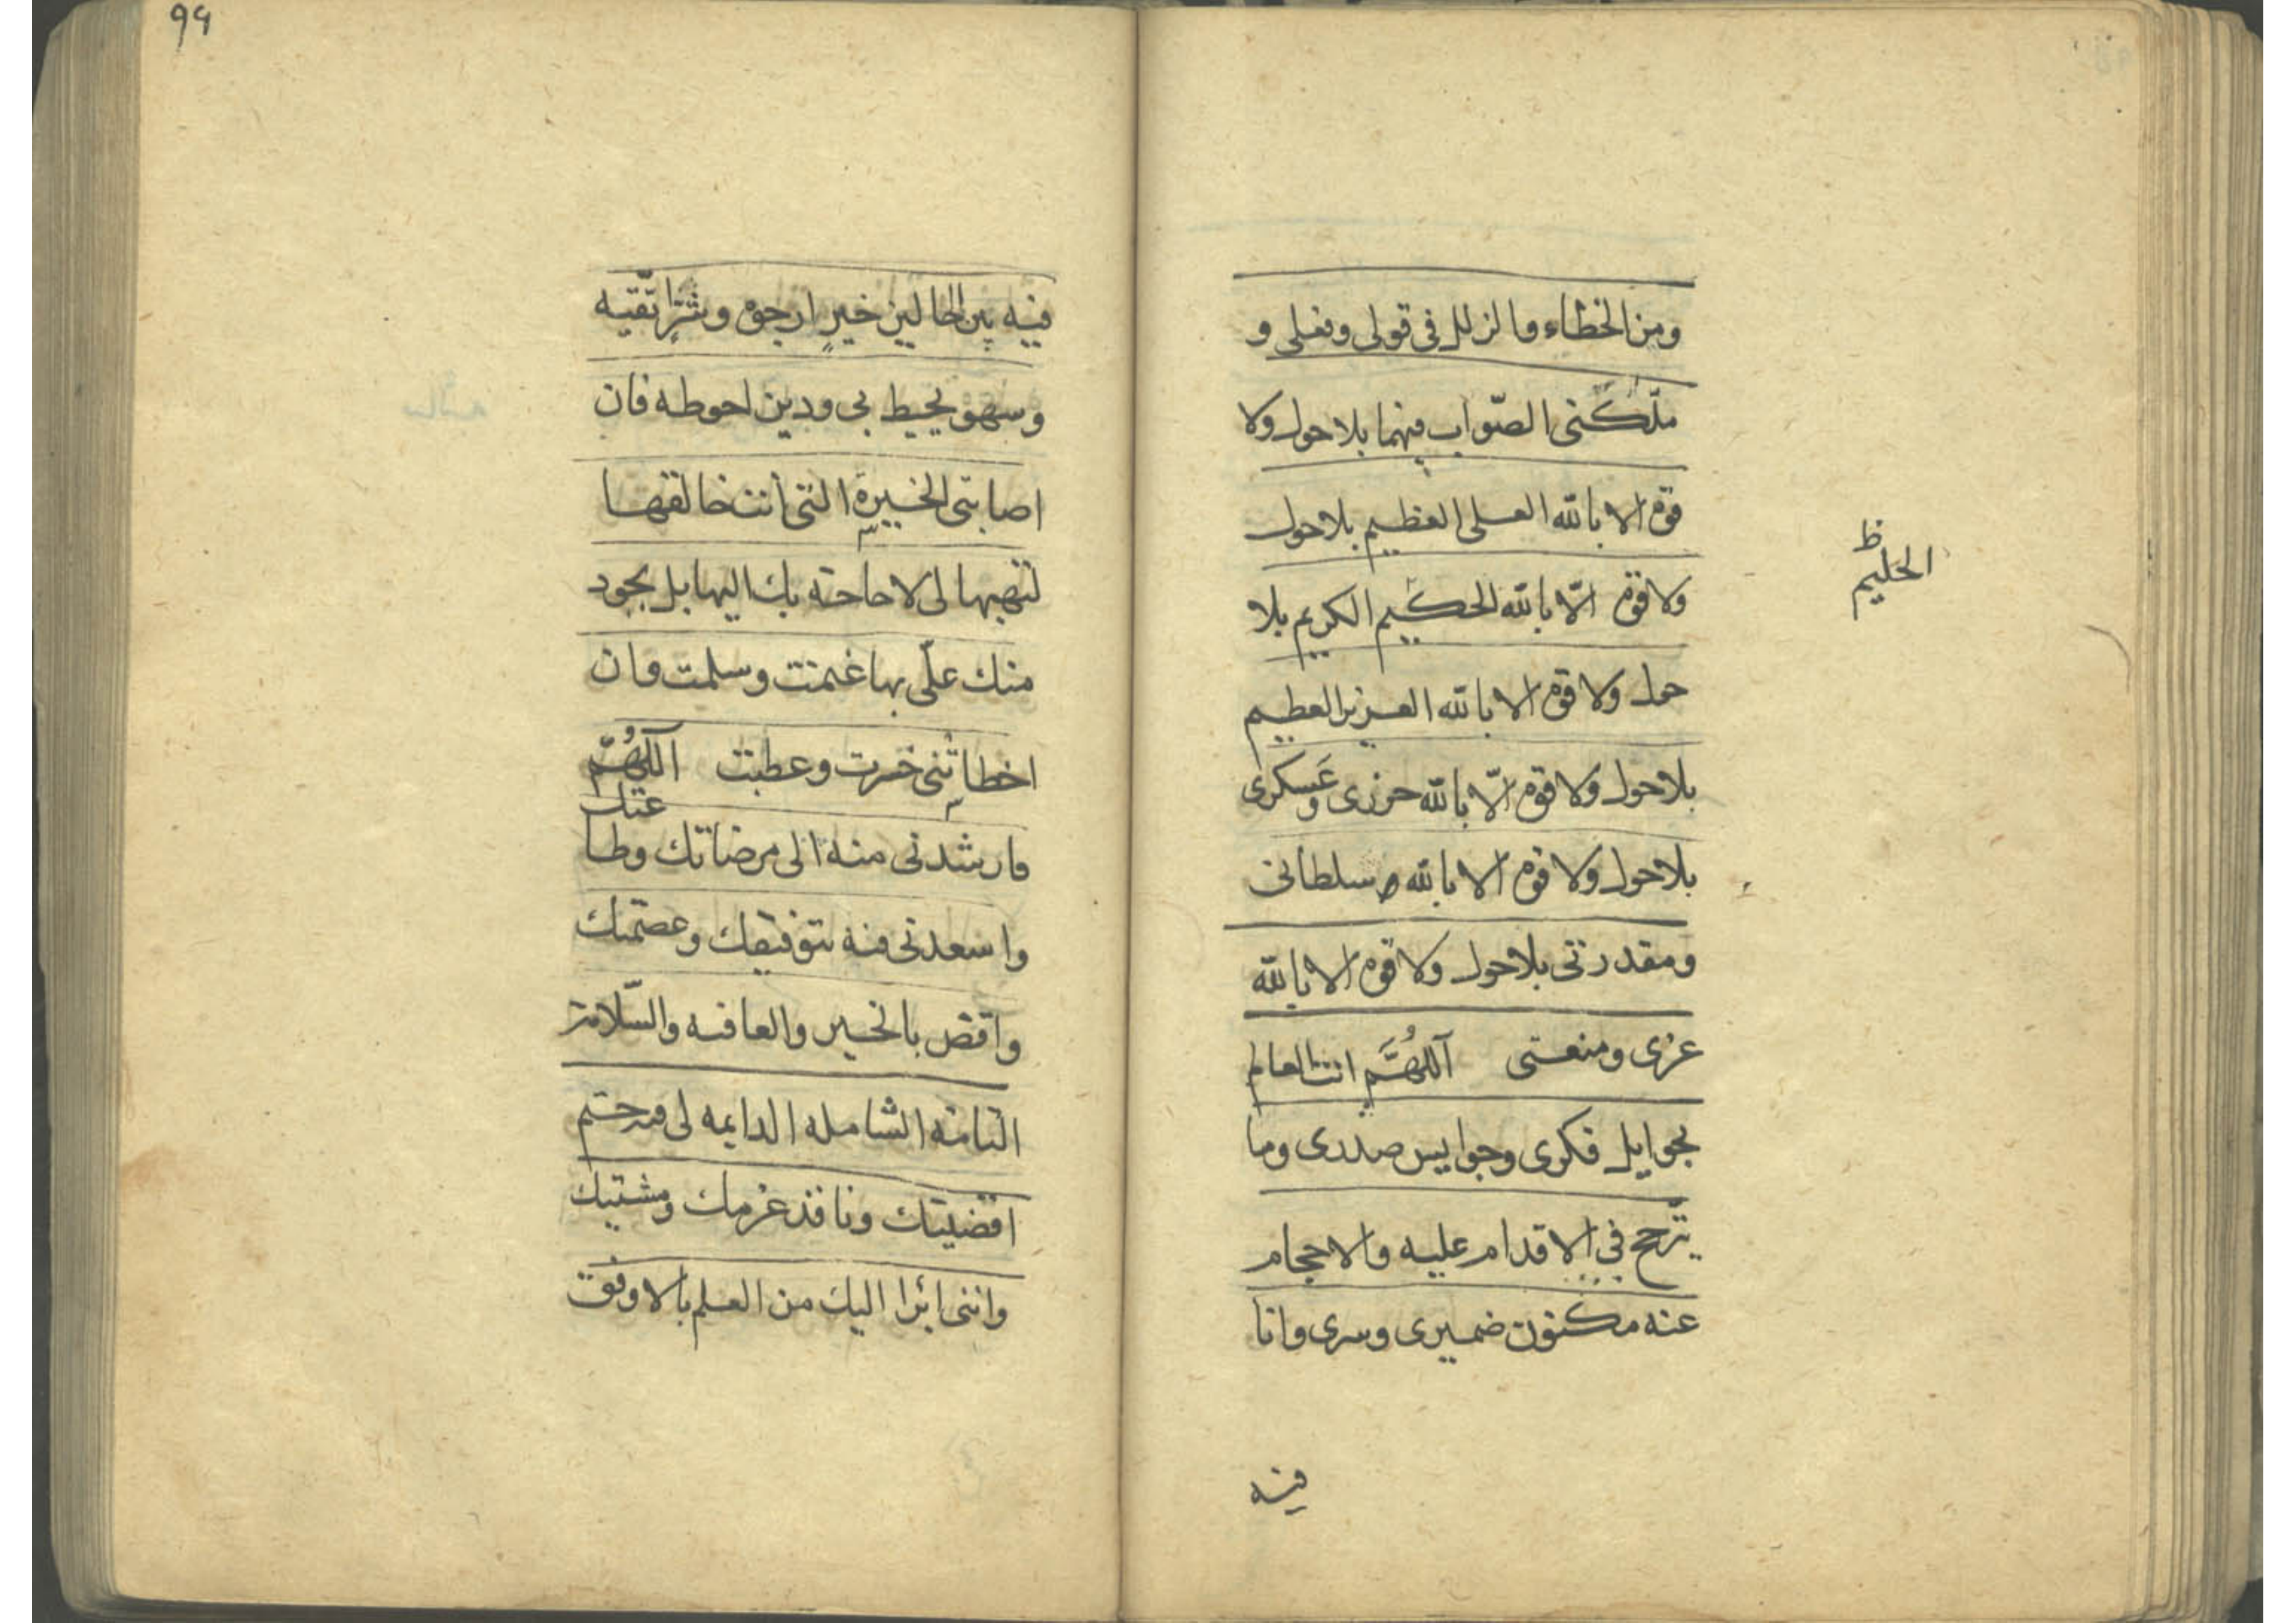 ومن الخطاء والزلل فی قولی وفعلی و
ملّكنی الصّواب فیهما بلا حول ولا
قوة الا بالله العلی العظیم بلا حول
ولا قوة الّا بالله الحكیم الكریم بلا
ظ
الحلیم
حول ولا قوة الا بالله العزیز العظیم
بلا حول ولا قوة الّا بالله حرزی وعَسكری
بلا حول ولا قوة الا بالله سلطانی
ومقدرتی بلا حول ولا قوة الا بالله
عزی ومنعتی اللهُمَّ انت العالم
بجوایل فكری وجوایس صدری وما
یترّجح فی الاقدام علیه والاحجام
عنه مكنون ضمیری وسری وانا
فیه
۹۹
فیه بین الحالین خیرٍ ارجوه وشرٍّ اتّقیه
وسهو یحیط بی ودین احوطه فان
اصابتنی الخیرة التی انت خالقها
لتهبها لی لا حاجة بك الیها بل بجود
منك علّی بها غنمت وسلمت وان
اخطاتنی خسرت وعطبت اللهُمّ
فارشدنی منه الی مرضاتك وطا
عتك
واسعدنی فیه بتوفیقك وعصمتك
واقض بالخیر والعافیه والسّلامة
التامة الشامله الدایمه لی فیه حتم
اقضیتك ونافذ عزمك ومشیتك
واننی ابرا الیك من العلم بالاوفق